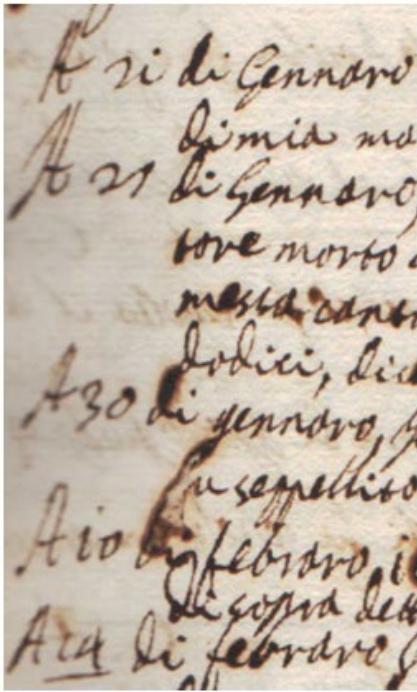 A 21 di Gennaro
di mia ma
A 21 di Gennaro,
tore morto
messa cant
dodici, dic
A 30 di gennaro,
fu seppellito
A 10 di febraro,
di sopra dett
A 14 di febraro